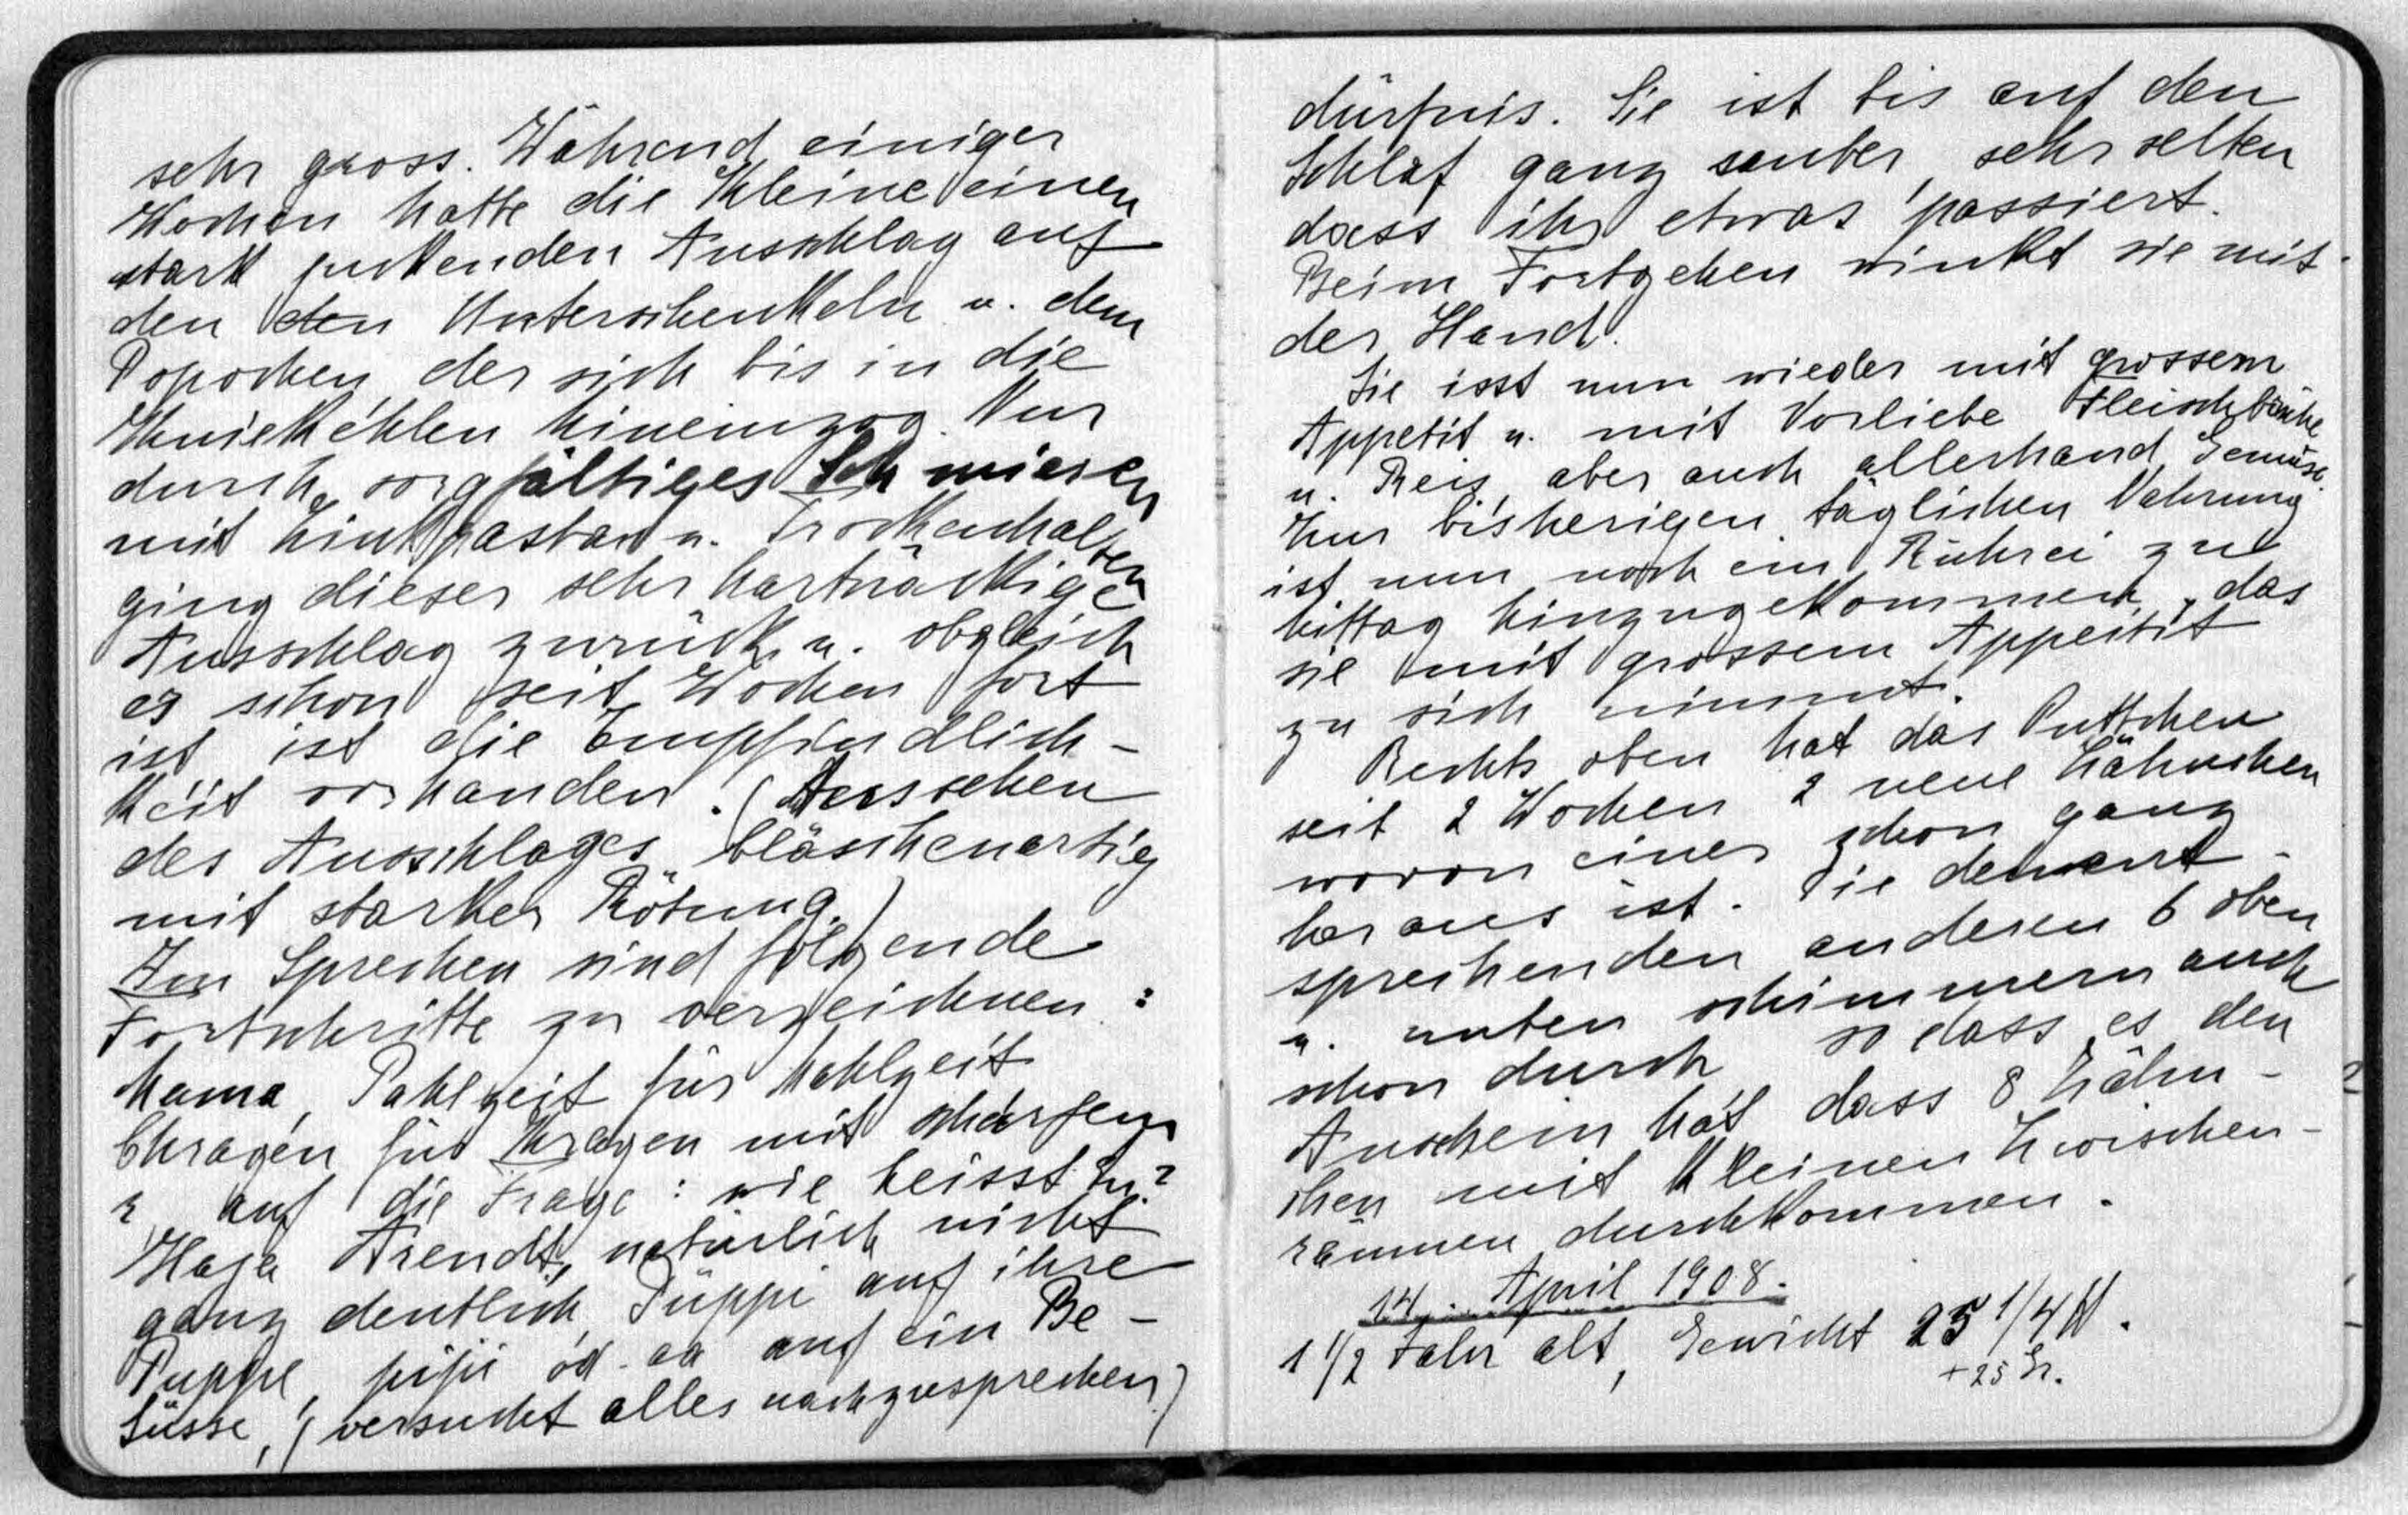 sehr gross. Während einiger
Wochen hatte die Kleine einen
stark juckenden Ausschlag auf
den den Unterschenkeln u. dem
Popochen, der sich bis in die
Kniekehlen hineinzog. Nur
durch sorgfältiges Schmieren
mit Zinkpasta u. Trockenhalten
ging dieser sehr hartnäckige
Ausschlag zurück u. obgleich
er schon seit Wochen fort
ist ist die Empfindlich-
keit vorhanden. (Aussehen
des Ausschlages bläschenartig
mit starker Rötung.)
Im Sprechen sind folgende
Fortschritte zu verzeichnen:
Mama, Pahlzeit für Mahlzeit
Chragen für Kragen mit scharfem
r auf die Frage: wie heisst du?
Haja Arendt, natürlich nicht
ganz deutlich, Püppi auf ihre
Puppe, pipi od. aa auf ein Be-
Süsse, (versucht alles nachzusprechen)
dürfnis. Sie ist bis auf den
Schlaf ganz sauber, sehr selten
dass ihr etwas passiert.
Beim Fortgehen winkt sie mit
der Hand.
Sie isst nun wieder mit grossem
Appetit u. mit Vorliebe Fleischbrühe
u. Reis, aber auch allerhand Gemüse.
Zur bisherigen täglichen Nahrung
ist nun noch ein Rührei zu
Mittag hinzugekommen, das
sie mit grossem Appetit
zu sich nimmt.
Rechts oben hat das Puttchen
seit 2 Wochen 2 neue Zähnchen
wovon eines schon ganz
heraus ist. Die dement-
sprechenden anderen 6 oben
u. unten schimmern auch
schon durch so dass es den
Anschein hat dass 8 Zähn-
chen mit kleinen Zwischen-
räumen durchkommen.
14. April 1908.
1 1/2 Jahr alt, Gewicht 25 1/4 ℔.
+ 25 Gr.